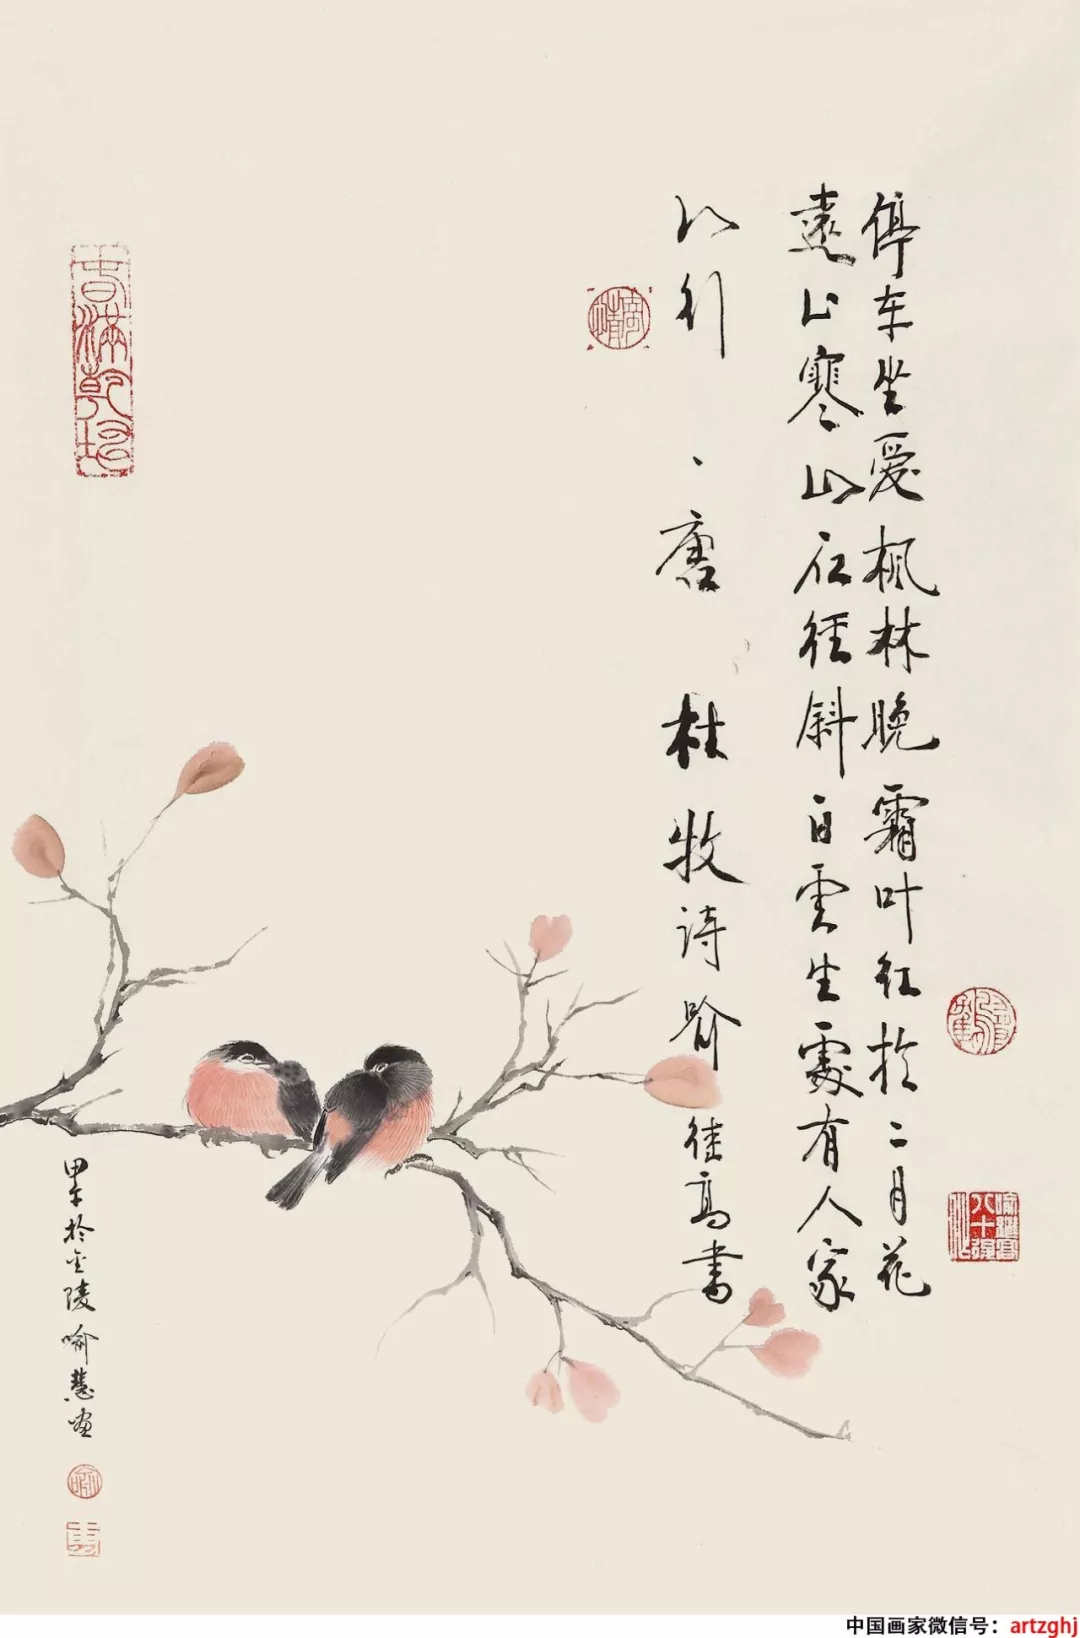 停车坐爱枫林晚霜叶红於二月花
遠上寒山石径斜白雲生處有人家
山行、唐 杜牧诗喻继高書
春滿乾坤
甲午於金陵喻慧画
喻
中国画家微信号：artzghj